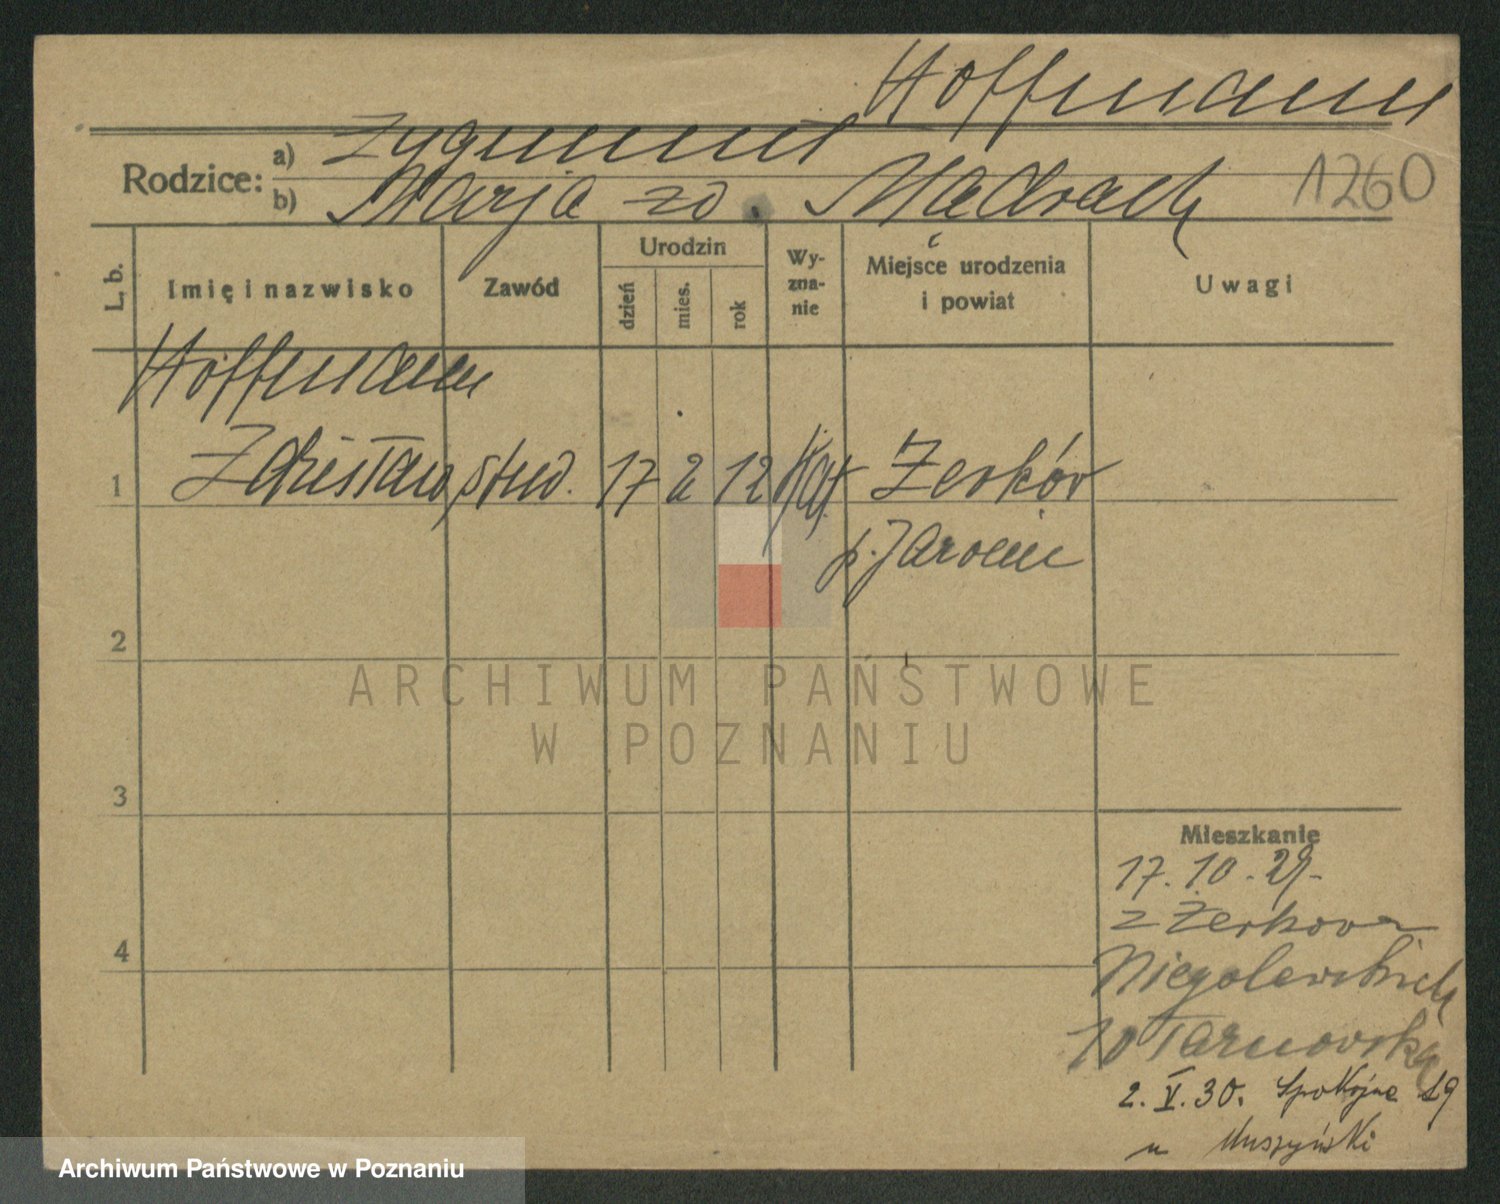 Hoffmann
Rodzice: a) Zygmunt
b) Marja zd. 1260
L. b. Imię i nazwisko Zawód Urodzin dzień mies. rok Wy-zna-nie Miejsce urodzenia i powiat Uwagi
Hoffmann
1 Zdzisław stud. 17 2 12 kat Żerków
p. Jarocin
2
ARCHIWUM PAŃSTWOWE
W POZNANIU
3
Mieszkanie
17. 10. 29.
z Żerkowa
4 Niegolewskich
10 Tarnowska
2. V. 30. Spokojna 19
u Muszyński
Archiwum Państwowe w Poznaniu